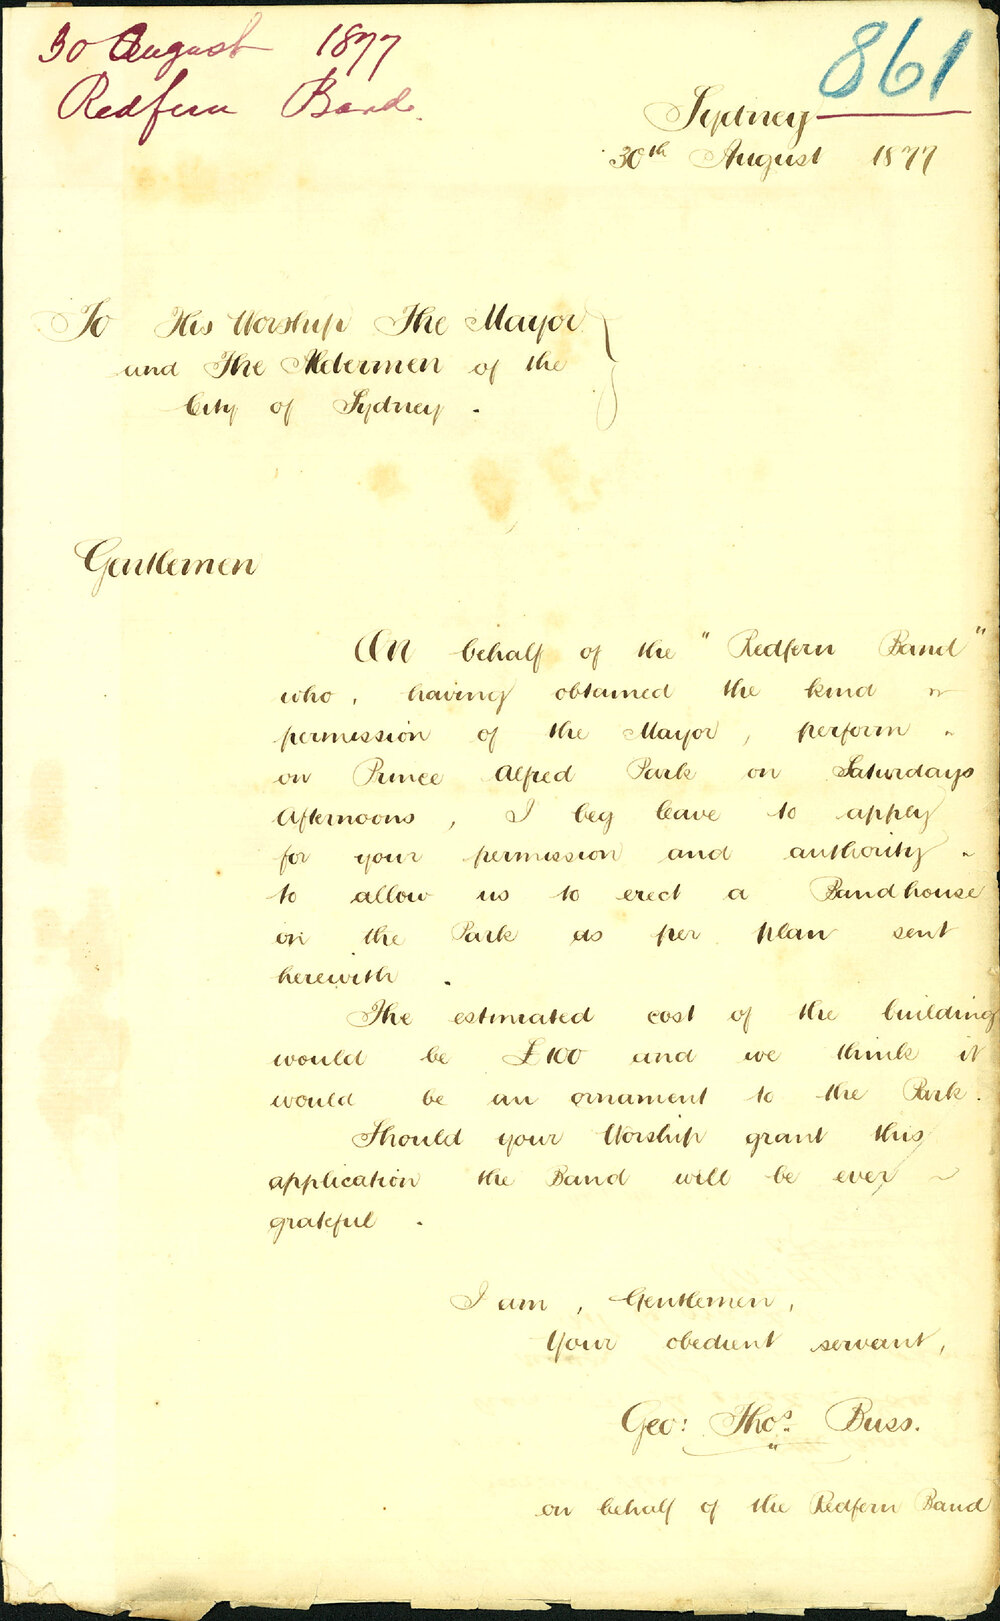 30 August 1877
Redfern Band.
861
Sydney
30th August 1877
To His Worship The Mayor
and The Aldermen of the
City of Sydney.
Gentlemen
On behalf of the "Redfern Band"
who, having obtained the kind
permission of the Mayor, perform
on Prince Alfred Park on Saturdays
Afternoons, I beg leave to apply
for your permission and authority
to allow us to erect a Bandhouse
on the Park as per plan sent
herewith.
The estimated cost of the building
would be £100 and we think it
would be an ornament to the Park.
Should your Worship grant this
application the Band will be ever
grateful.
I am, Gentlemen,
Your obedient servant,
Geo: Thos. Buss.
on behalf of the Redfern Band